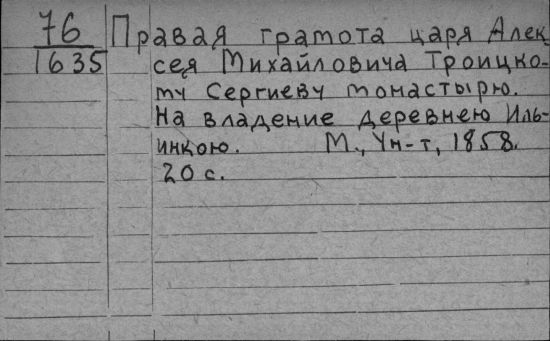 76 Правая грамота царя Алек
1635 сея Михайловича Троицко-
му Сергиеву монастырю.
На владение деревнею Иль-
инкою. М., Ун-т, 1858.
20 с.